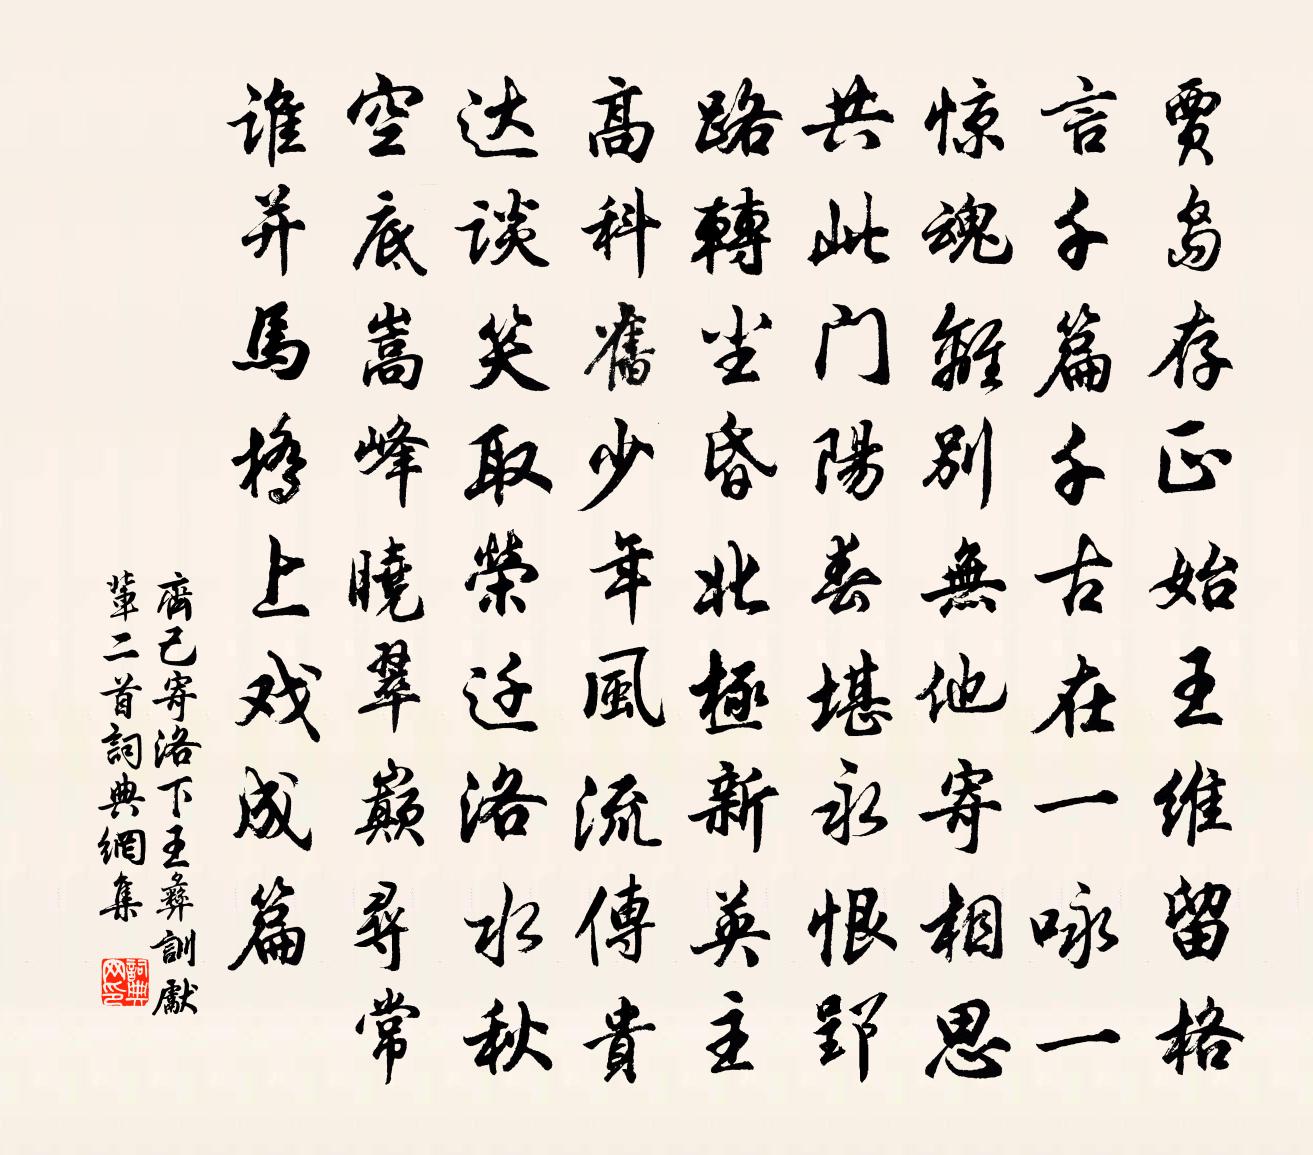 贾岛存正始王维留格
言千篇千古在一咏一
惊魂離别無他寄相思
共此门陽春堪永恨郢
路轉坐昏北極新英主
高科舊少年風流傳貴
达談笑取榮迁洛水秋
空底嵩峰曉翠巔尋常
谁并馬橋上戏成篇
齊己寄洛下王彝訓獻
輩二首詞典網集
詞典网印